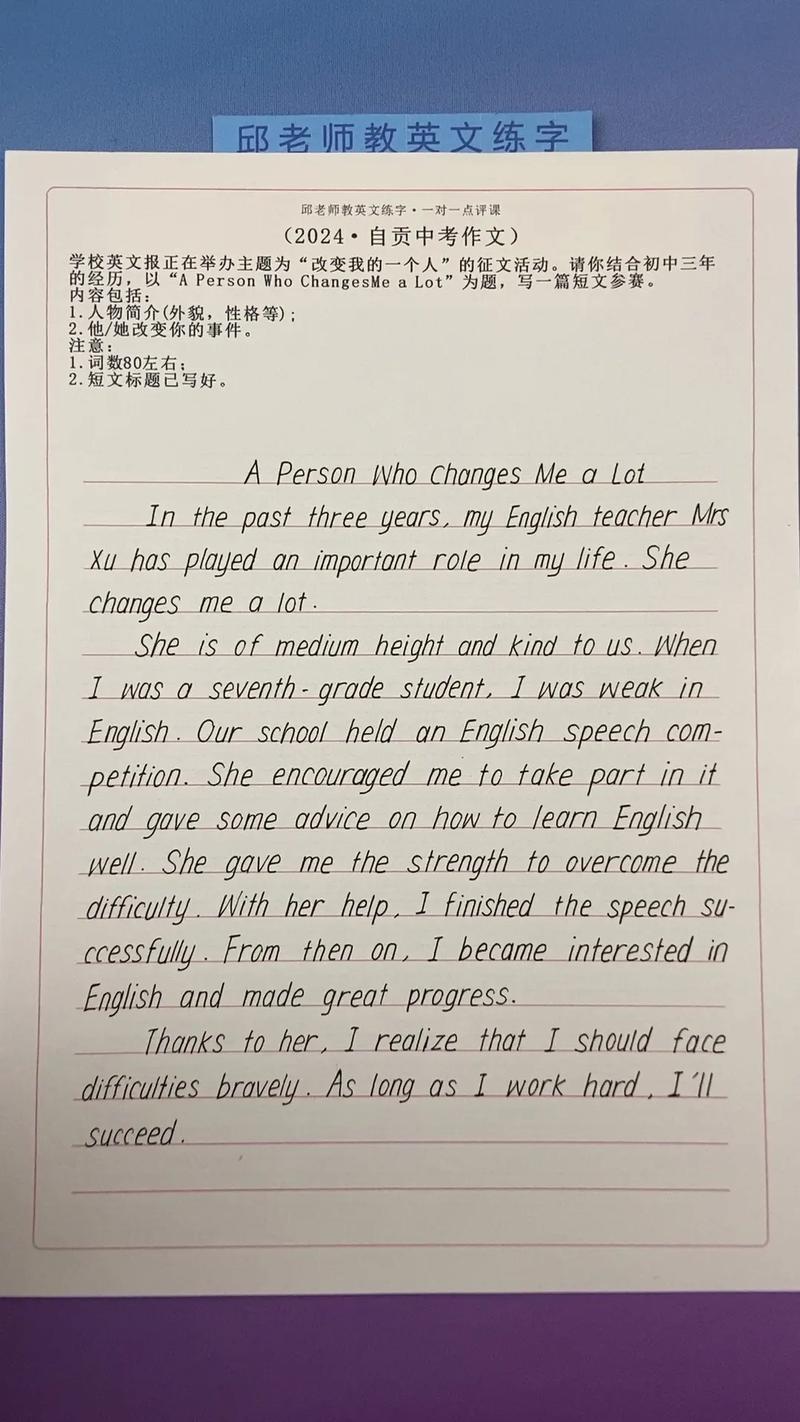 邱老师教英文练字
邱老师教英文练字·一对一点评课
（2024·自贡中考作文）
学校英文报正在举办主题为“改变我的一个人”的征文活动。请你结合初中三年
的经历，以“A Person Who ChangesMe a Lot”为题，写一篇短文参赛。
内容包括：
1.人物简介(外貌，性格等)；
2.他/她改变你的事件。
注意：
1.词数80左右；
2.短文标题已写好。
A Person Who Changes Me a Lot
In the past three years, my English teacher Mrs
Xu has played an important role in my life. She
changes me a lot.
She is of medium height and kind to us. When
I was a seventh-grade student, I was weak in
English. Our school held an English speech com-
petition. She encouraged me to take part in it
and gave some advice on how to learn English
well. She gave me the strength to overcome the
difficulty. With her help, I finished the speech su-
ccessfully. From then on, I became interested in
English and made great progress.
Thanks to her, I realize that I should face
difficulties bravely. As long as I work hard, I'll
succeed.